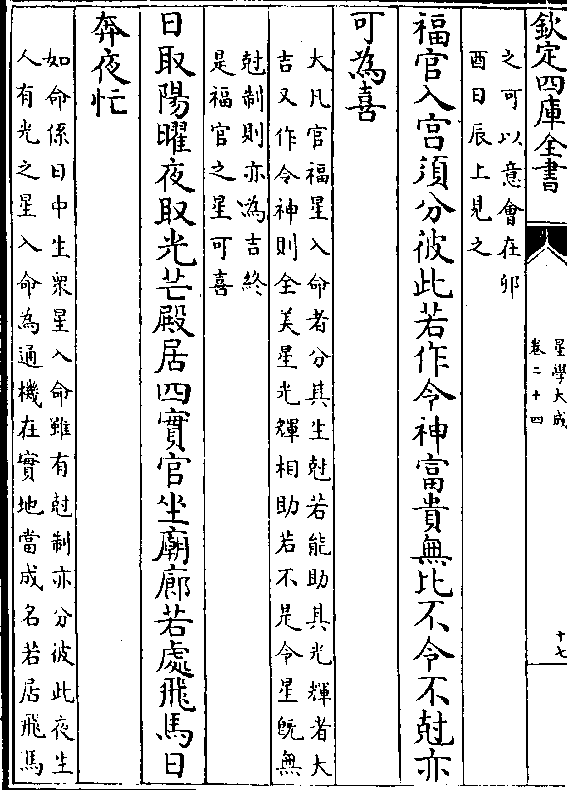 欽定四庫全書
星學大成
卷二十四
十七
之可以意會在卯
酉日辰上見之
福官入宫須分彼此若作令神富貴無比不令不尅亦
可為喜
大凡官福星入命者分其生尅若能助具光輝者大
吉又作令神則全美星光輝相助若不是令星旣無
尅制則亦為吉終
是福官之星可喜
日取陽曜夜取光芒殿居四實官坐廟廊若處飛馬日
奔夜忙
如命係日中生衆星入命雖有尅制亦分彼此夜生
人有光之星入命為通機在實地當成名若居飛馬